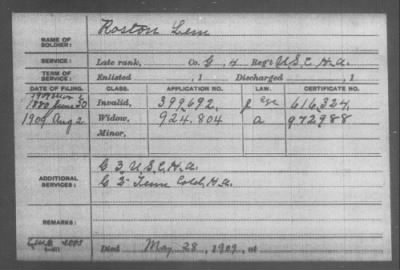 NAME OF
SOLDIER: Roston Lem
SERVICE: Late rank, Co. G, 4 Reg't U.S.C.H.A.
TERM OF
SERVICE: Enlisted , 1 Discharged , 1
DATE OF FILING. CLASS. APPLICATION NO. LAW. CERTIFICATE NO.
1880 June 30 Invalid, 399,692. 616,324.
1909 Aug 2 Widow, 924.804 a 972988
Minor,
ADDITIONAL
SERVICES: G 3 U.S.C.H.A.
G 2 Tenn Cold. H.A.
REMARKS:
Died May 28, 1909, at